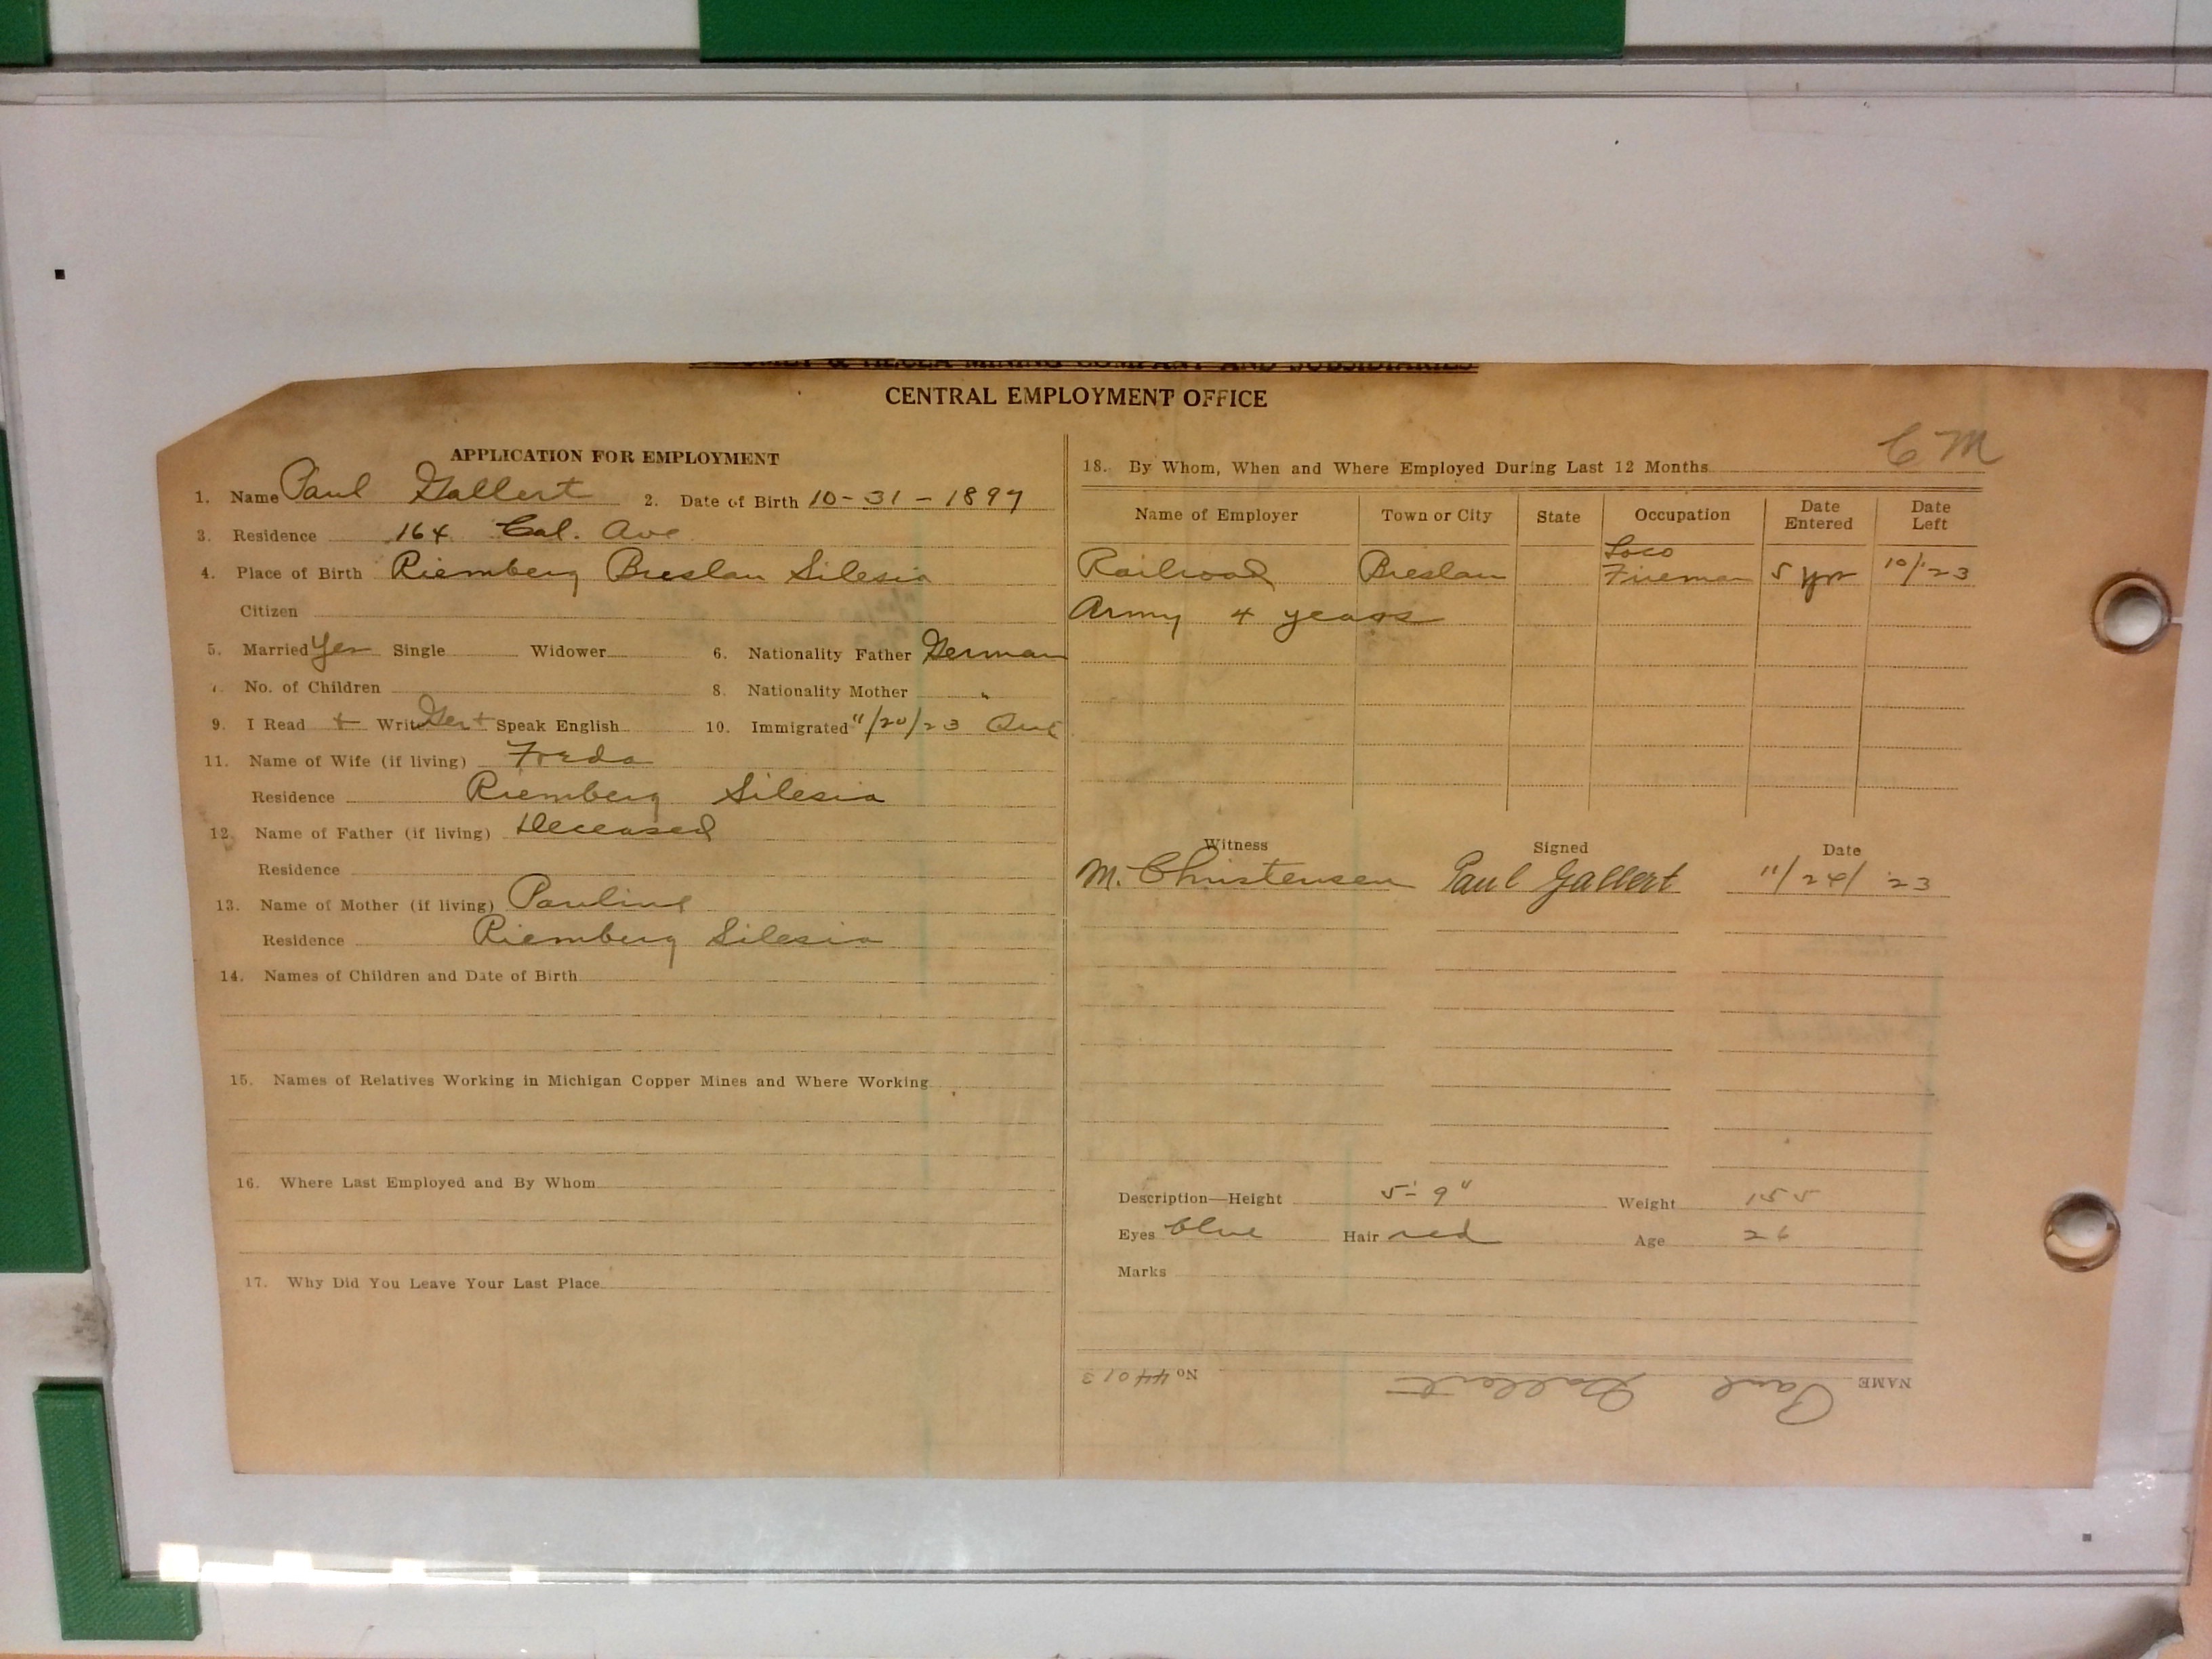 & HECLA MINING COMPANY AND SUBSIDIARIES
CENTRAL EMPLOYMENT OFFICE
APPLICATION FOR EMPLOYMENT
1. Name Paul Gallert 2. Date of Birth 10-31-1897
3. Residence 164 Cal. Ave
4. Place of Birth Riemberg Breslau Silesia
Citizen
5. Married Yes Single Widower 6. Nationality Father German
7. No. of Children 8. Nationality Mother "
9. I Read + Write Ger + Speak English 10. Immigrated 11/20/23
11. Name of Wife (if living) Freda
Residence Riemberg Silesia
12. Name of Father (if living) Deceased
Residence
13. Name of Mother (if living) Pauline
Residence Riemberg Silesia
14. Names of Children and Date of Birth
15. Names of Relatives Working in Michigan Copper Mines and Where Working
16. Where Last Employed and By Whom
17. Why Did You Leave Your Last Place
C M
18. By Whom, When and Where Employed During Last 12 Months
Name of Employer Town or City State Occupation Date Entered Date Left
Railroad Breslau Loco Fireman 5 yrs 10/23
Army 4 years
Witness Signed Date
M. Christensen Paul Gallert 11/24/23
Description—Height 5'-9" Weight 155
Eyes blue Hair red Age 26
Marks
NAME Paul Gallert No 44013